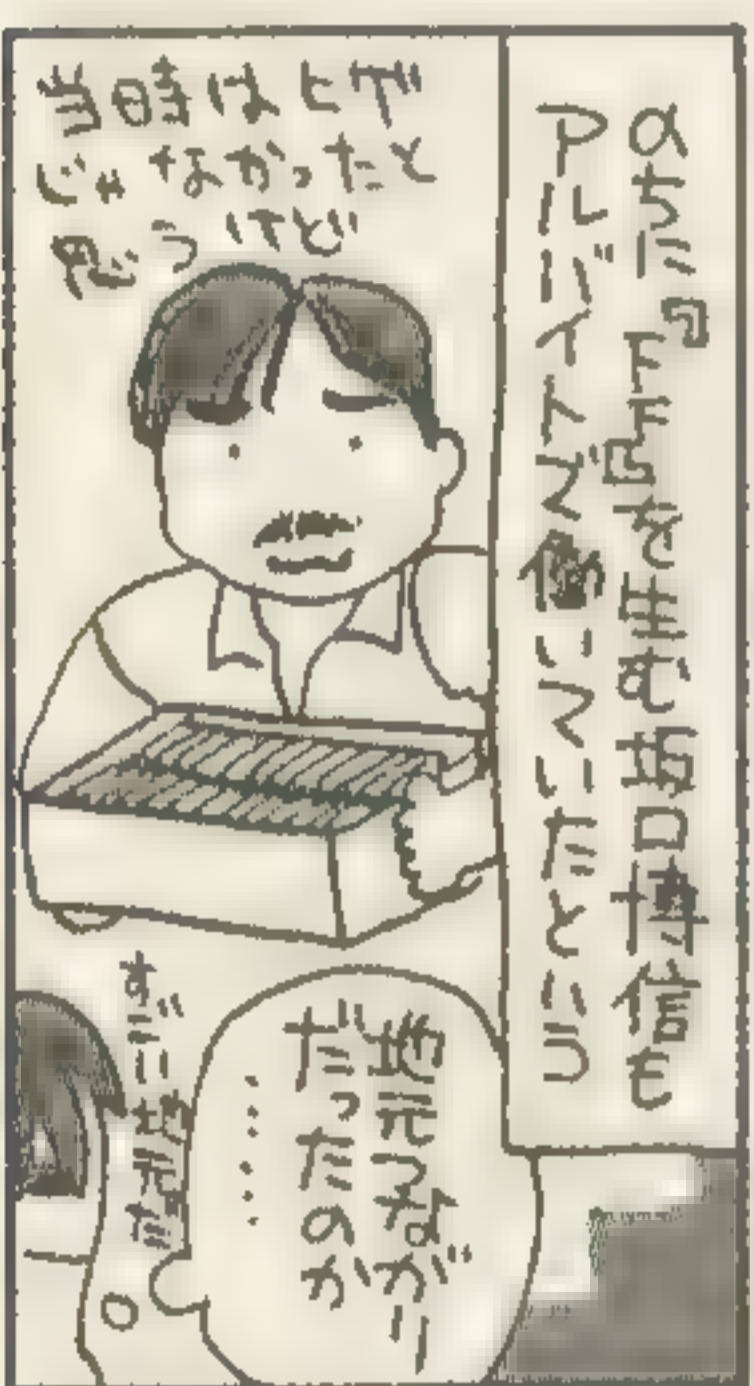 のちに『FF』を生む坂口博信も
アルバイトで働いていたという
当時はヒゲ
じゃなかったと
思うけど
地元つながり
だったのか
……
すごい地元だ